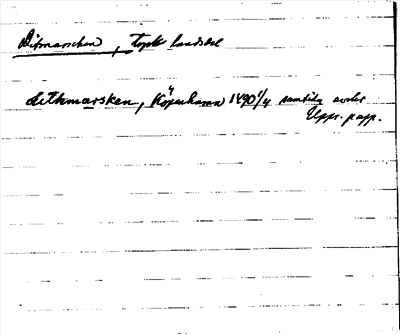 Ditmarschen, tysk landsdel
dithmarsken, Köpenhamn 1490 1/4 samtida avskr.
Upps. papp.